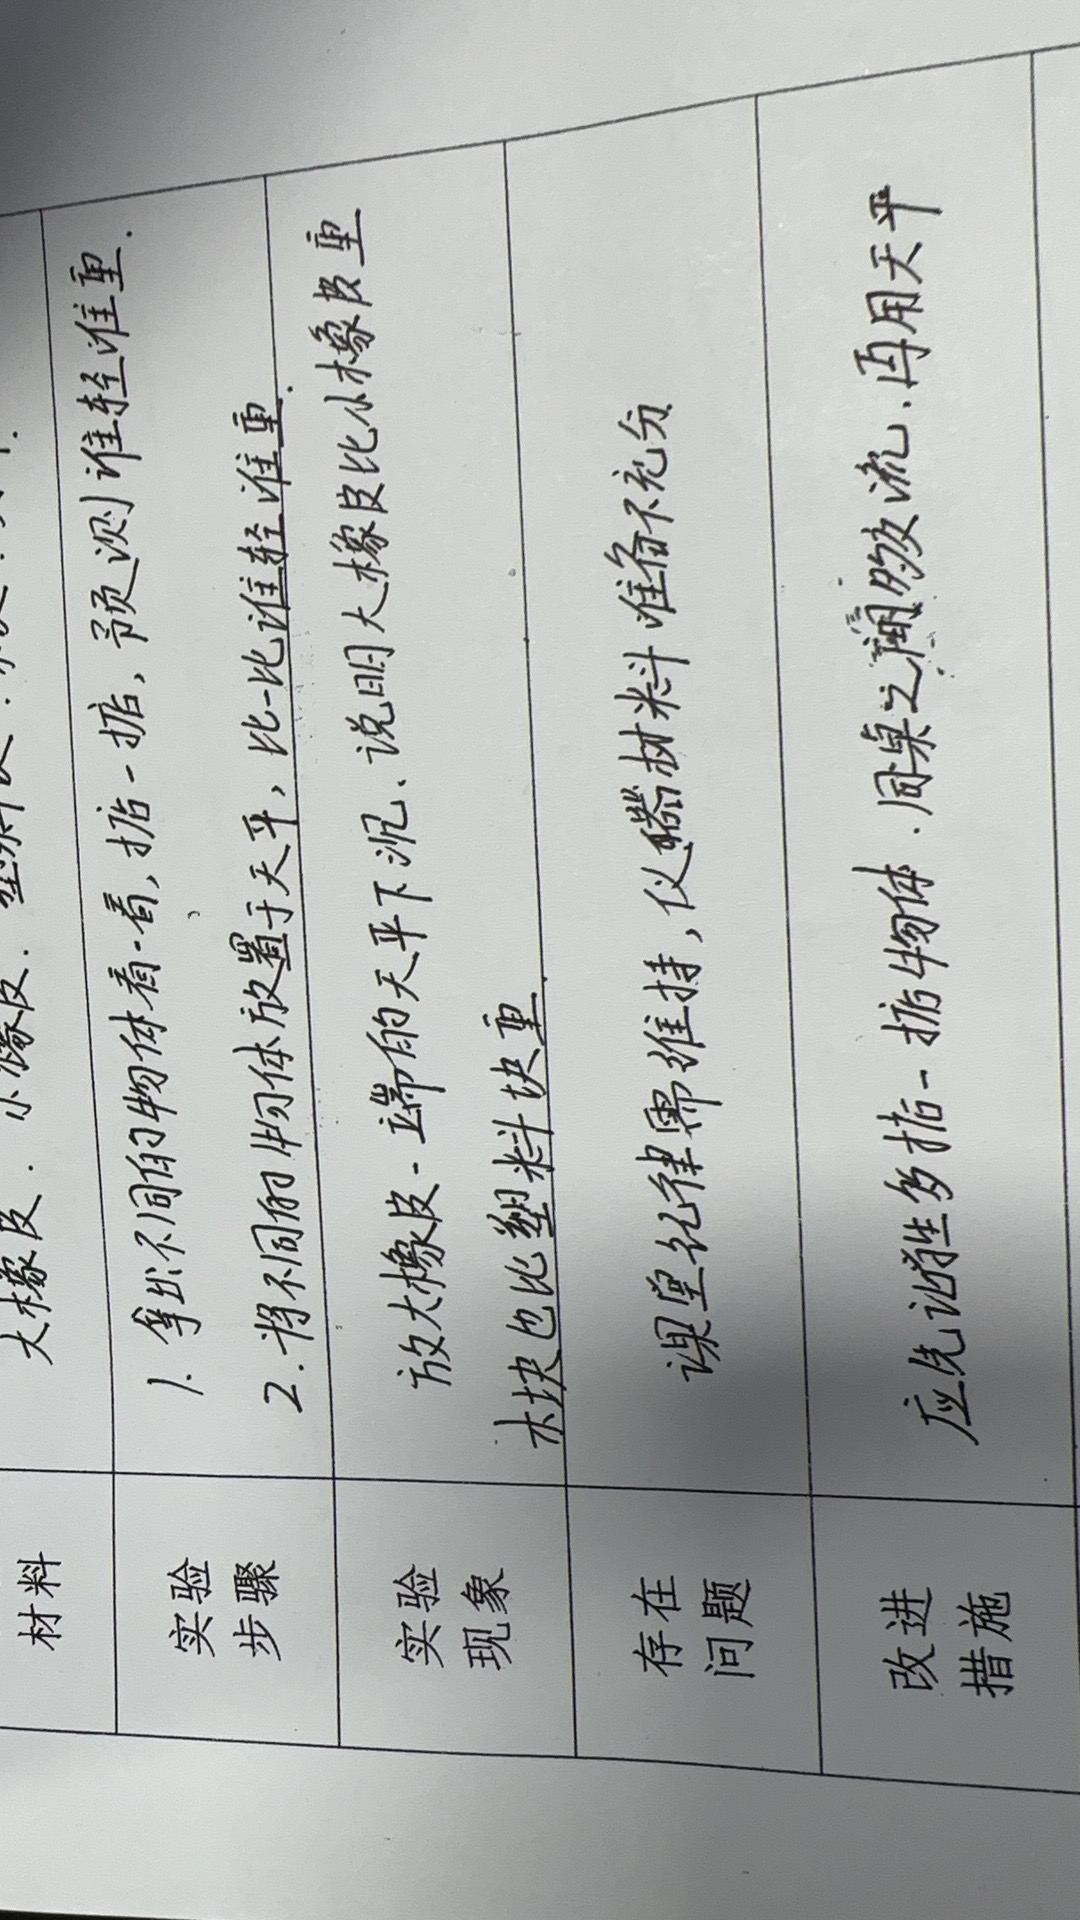 材料
大橡皮. 小橡皮.
实验
步骤
1. 拿出不同的物体看一看, 掂一掂, 预测谁轻谁重.
2. 将不同的物体放置于天平, 比一比谁轻谁重.
实验
现象
放大橡皮一端的天平下沉、说明大橡皮比小橡皮重
木块也比塑料块重.
存在
问题
课堂纪律需维持, 仪器材料准备不充分.
改进
措施
应先让学生多掂一掂物体. 同桌之间多交流. 再用天平